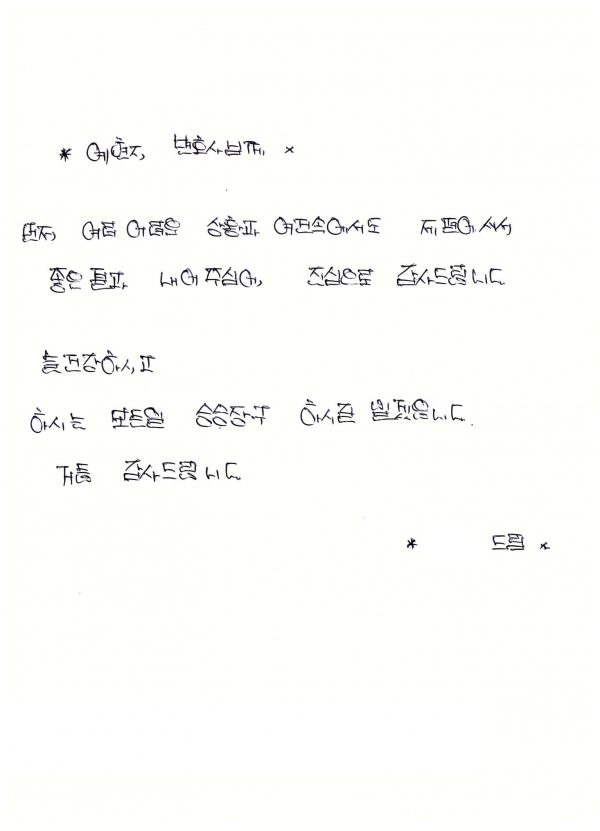 * 예현지, 변호사님께. *
먼저, 여러 어려운 상황과 여건속에서도 저편에 서서
좋은 결과 내어 주심에, 진심으로 감사드립니다
늘 건강하시고
하시는 모든일 승승장구 하시길 빌겠읍니다.
거듭 감사드립니다
* 드림 *